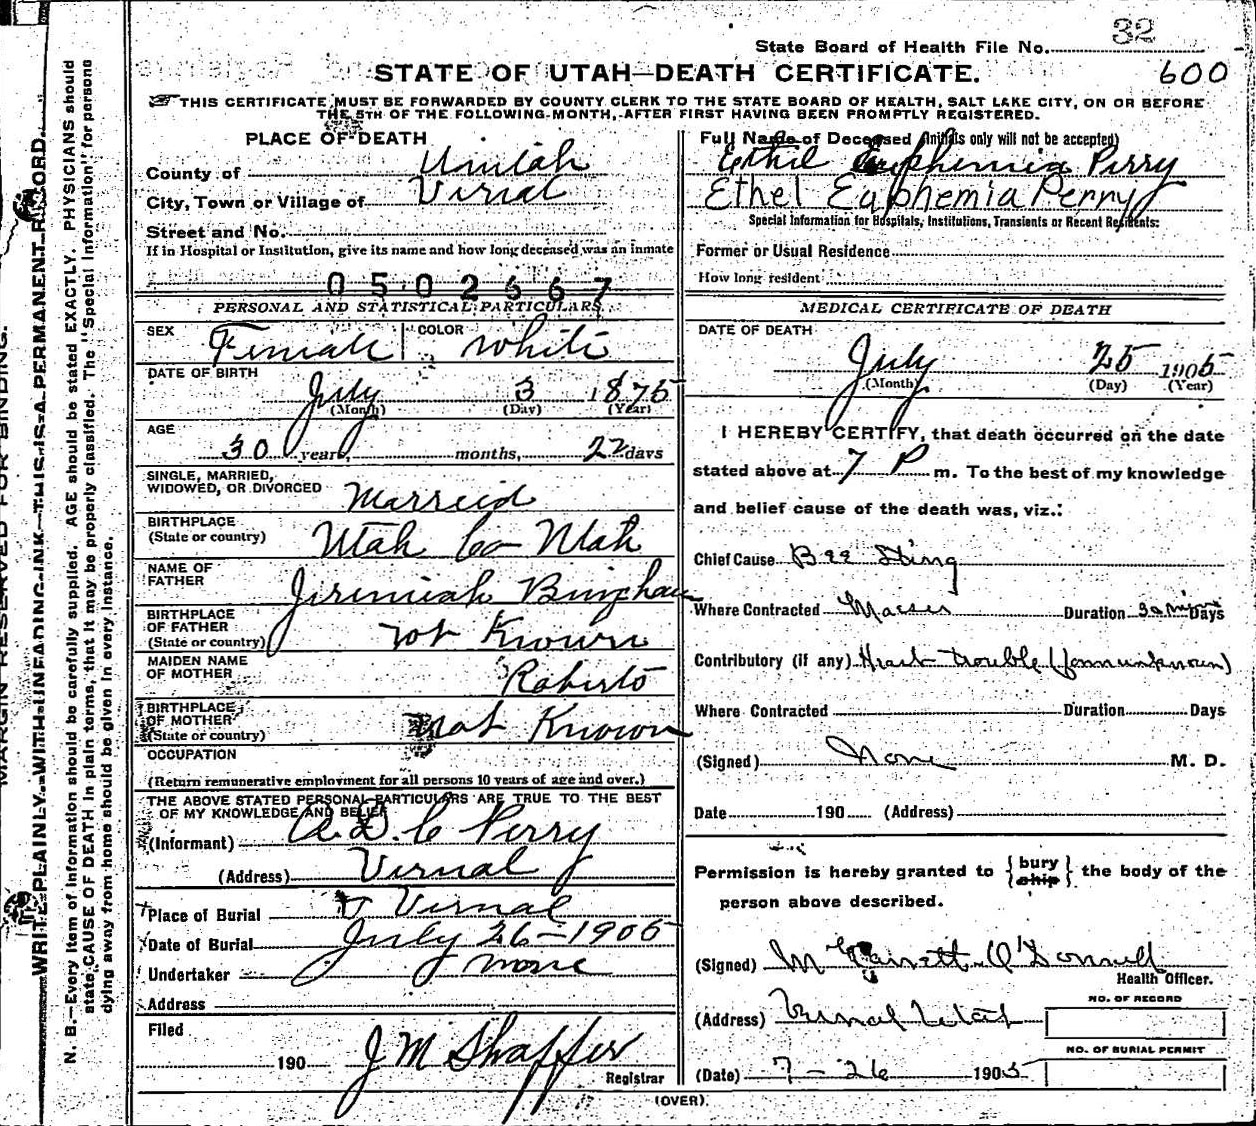 32
State Board of Health File No.
600
STATE OF UTAH—DEATH CERTIFICATE.
THIS CERTIFICATE MUST BE FORWARDED BY COUNTY CLERK TO THE STATE BOARD OF HEALTH, SALT LAKE CITY, ON OR BEFORE
THE 5TH OF THE FOLLOWING MONTH, AFTER FIRST HAVING BEEN PROMPTLY REGISTERED.
MARGIN RESERVED FOR BINDING.
WRITE PLAINLY WITH UNFADING INK—THIS IS A PERMANENT RECORD.
N. B.—Every item of information should be carefully supplied. AGE should be stated EXACTLY. PHYSICIANS should
state CAUSE OF DEATH in plain terms, that it may be properly classified. The "Special Information" for persons
dying away from home should be given in every instance.
PLACE OF DEATH
County of Uintah
City, Town or Village of Virnal
Street and No.
If in Hospital or Institution, give its name and how long deceased was an inmate
0502667
PERSONAL AND STATISTICAL PARTICULARS
SEX Female COLOR White
DATE OF BIRTH
July 3 1875
(Month) (Day) (Year)
AGE
30 years, months, 22 days
SINGLE, MARRIED,
WIDOWED, OR DIVORCED Marreid
BIRTHPLACE
(State or country) Utah Co Utah
NAME OF
FATHER Jeremiah Bingham
BIRTHPLACE
OF FATHER
(State or country) not Known
MAIDEN NAME
OF MOTHER Roberts
BIRTHPLACE
OF MOTHER
(State or country) not Known
OCCUPATION
(Return remunerative employment for all persons 10 years of age and over.)
THE ABOVE STATED PERSONAL PARTICULARS ARE TRUE TO THE BEST
OF MY KNOWLEDGE AND BELIEF
(Informant) A. D. C Perry
(Address) Virnal
Place of Burial Virnal
Date of Burial July 26-1905
Undertaker none
Address
Filed
190 J M Shaffer
Registrar
Full Name of Deceased (Initials only will not be accepted)
Ethel Euphemia Perry
Ethel Euphemia Perry
Special Information for Hospitals, Institutions, Transients or Recent Residents:
Former or Usual Residence
How long resident
MEDICAL CERTIFICATE OF DEATH
DATE OF DEATH
July 25 1905
(Month) (Day) (Year)
I HEREBY CERTIFY, that death occurred on the date
stated above at 7 P m. To the best of my knowledge
and belief cause of the death was, viz.:
Chief Cause Bee Sting
Where Contracted Maeser Duration 30 mins Days
Contributory (if any) Heart trouble (form unknown)
Where Contracted Duration Days
(Signed) None M. D.
Date 190 (Address)
Permission is hereby granted to {bury ship} the body of the
person above described.
(Signed) M Garrett O'Donnell
Health Officer.
NO. OF RECORD
(Address) Vernal Utah
NO. OF BURIAL PERMIT
(Date) 7-26 1905
(OVER)